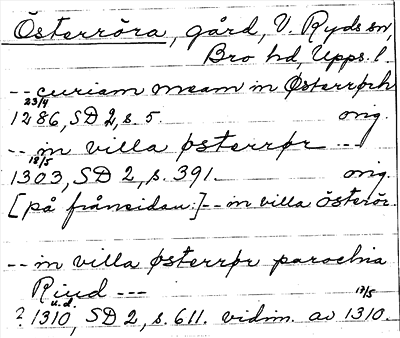 Österröra, gård, V. Ryds sn,
Bro hd, Upps. l.
-- curiam meam in Østerrørh
23/4
1286, SD 2, s. 5. orig.
-- in villa østerrør ---
18/5
1303, SD 2, s. 391. orig.
[på frånsidan:] -- in villa österör.
-- in villa østerrør parochia
Riud ---
u.d. 17/5
? 1310, SD 2, s. 611. vidim. av 1310.